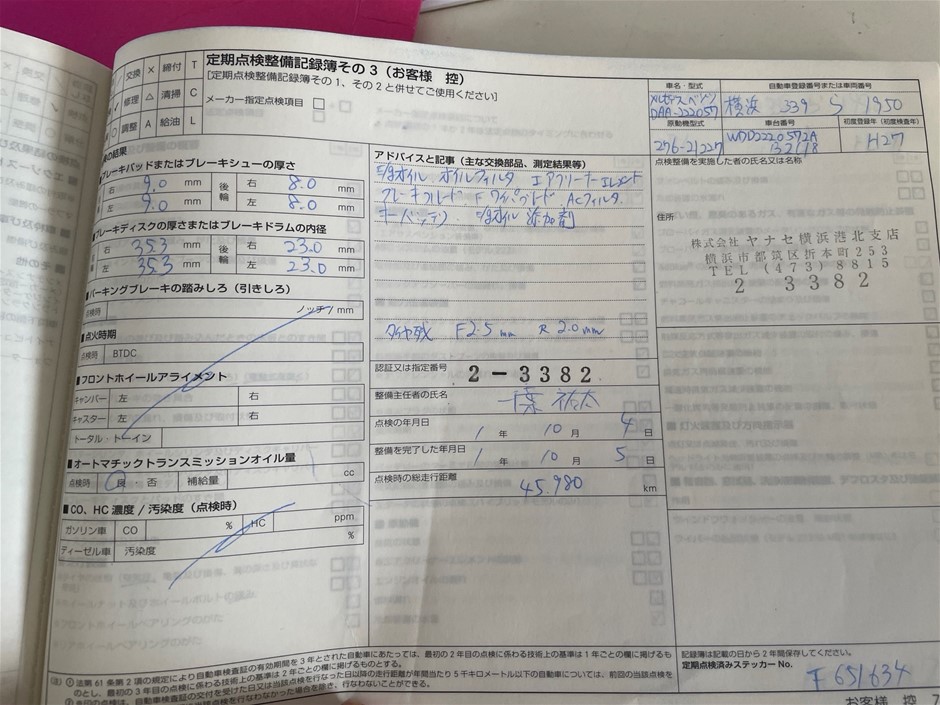 交換 × 締付 T
修理 △ 清掃 C
調整 A 給油 L
定期点検整備記録簿その3（お客様　控）
[定期点検整備記録簿その1、その2と併せてご使用ください]
メーカー指定点検項目
の結果
ブレーキパッドまたはブレーキシューの厚さ
右 9.0 mm 後輪 右 8.0 mm
左 9.0 mm 左 8.0 mm
ブレーキディスクの厚さまたはブレーキドラムの内径
右 35.3 mm 後輪 右 23.0 mm
左 35.3 mm 左 23.0 mm
パーキングブレーキの踏みしろ（引きしろ）
点検時 ノッチ/mm
■点火時期
点検時 BTDC
■フロントホイールアライメント
キャンバー 左 右
キャスター 左 右
トータル・トーイン
■オートマチックトランスミッションオイル量
点検時 良・否 補給量 cc
■CO、HC 濃度 / 汚染度（点検時）
ガソリン車 CO % HC ppm
ディーゼル車 汚染度 %
アドバイスと記事（主な交換部品、測定結果等）
E/gオイル オイルフィルタ エアクリーナーエレメント
ブレーキフルード Fワイパブレード ACフィルタ
キーバッテリ E/gオイル 添加剤
タイヤ残 F2.5mm R 2.0mm
認証又は指定番号 2-3382
整備主任者の氏名 祐太
点検の年月日 1 年 10 月 4 日
整備を完了した年月日 1 年 10 月 5 日
点検時の総走行距離 45.980 km
車名・型式 自動車登録番号または車両番号
メルセデスベンツ
DAA-222057 横浜 339 S 1950
原動機型式 車台番号 初度登録年（初度検査年）
276-21227 WDD2220572A H27
点検整備を実施した者の氏名又は名称
住所
株式会社 ヤナセ横浜港北支店
横浜市都筑区折本町253
TEL (473) 8815
2 3382
記録簿は記載の日から2年間保存してください。
定期点検済みステッカー No.
〒651634
（注）① 法第 61 条第 2 項の規定により自動車検査証の有効期間を3年とされた自動車にあたっては、最初の2年目の点検に係わる技術上の基準は1年ごとの欄に掲げるもの
お客様　控 7